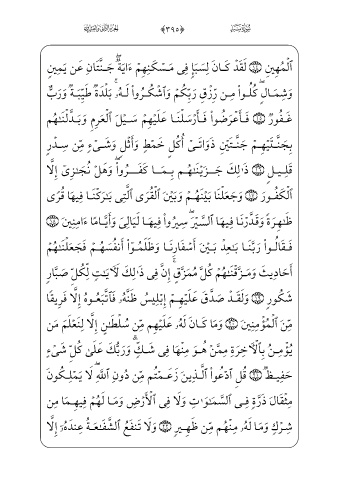 سُورَةُ سَبَإٍ ﴿٣٩٥﴾ الجزء الثاني والعشرون
ٱلْمُهِينِ ١٤ لَقَدْ كَانَ لِسَبَإٍ فِى مَسْكَنِهِمْ ءَايَةٌ ۖ جَنَّتَانِ عَن يَمِينٍ
وَشِمَالٍ ۖ كُلُوا۟ مِن رِّزْقِ رَبِّكُمْ وَٱشْكُرُوا۟ لَهُۥ ۚ بَلْدَةٌ طَيِّبَةٌ وَرَبٌّ
غَفُورٌ ١٥ فَأَعْرَضُوا۟ فَأَرْسَلْنَا عَلَيْهِمْ سَيْلَ ٱلْعَرِمِ وَبَدَّلْنَٰهُم
بِجَنَّتَيْهِمْ جَنَّتَيْنِ ذَوَاتَىْ أُكُلٍ خَمْطٍ وَأَثْلٍ وَشَىْءٍ مِّن سِدْرٍ
قَلِيلٍ ١٦ ذَٰلِكَ جَزَيْنَٰهُم بِمَا كَفَرُوا۟ ۖ وَهَلْ نُجَٰزِىٓ إِلَّا
ٱلْكَفُورَ ١٧ وَجَعَلْنَا بَيْنَهُمْ وَبَيْنَ ٱلْقُرَى ٱلَّتِى بَٰرَكْنَا فِيهَا قُرًى
ظَٰهِرَةً وَقَدَّرْنَا فِيهَا ٱلسَّيْرَ ۖ سِيرُوا۟ فِيهَا لَيَالِىَ وَأَيَّامًا ءَامِنِينَ ١٨
فَقَالُوا۟ رَبَّنَا بَٰعِدْ بَيْنَ أَسْفَارِنَا وَظَلَمُوٓا۟ أَنفُسَهُمْ فَجَعَلْنَٰهُمْ
أَحَادِيثَ وَمَزَّقْنَٰهُمْ كُلَّ مُمَزَّقٍ ۚ إِنَّ فِى ذَٰلِكَ لَءَايَٰتٍ لِّكُلِّ صَبَّارٍ
شَكُورٍ ١٩ وَلَقَدْ صَدَّقَ عَلَيْهِمْ إِبْلِيسُ ظَنَّهُۥ فَٱتَّبَعُوهُ إِلَّا فَرِيقًا
مِّنَ ٱلْمُؤْمِنِينَ ٢٠ وَمَا كَانَ لَهُۥ عَلَيْهِم مِّن سُلْطَٰنٍ إِلَّا لِنَعْلَمَ مَن
يُؤْمِنُ بِٱلْءَاخِرَةِ مِمَّنْ هُوَ مِنْهَا فِى شَكٍّ ۗ وَرَبُّكَ عَلَىٰ كُلِّ شَىْءٍ
حَفِيظٌ ٢١ قُلِ ٱدْعُوا۟ ٱلَّذِينَ زَعَمْتُم مِّن دُونِ ٱللَّهِ ۖ لَا يَمْلِكُونَ
مِثْقَالَ ذَرَّةٍ فِى ٱلسَّمَٰوَٰتِ وَلَا فِى ٱلْأَرْضِ وَمَا لَهُمْ فِيهِمَا مِن
شِرْكٍ وَمَا لَهُۥ مِنْهُم مِّن ظَهِيرٍ ٢٢ وَلَا تَنفَعُ ٱلشَّفَٰعَةُ عِندَهُۥٓ إِلَّا